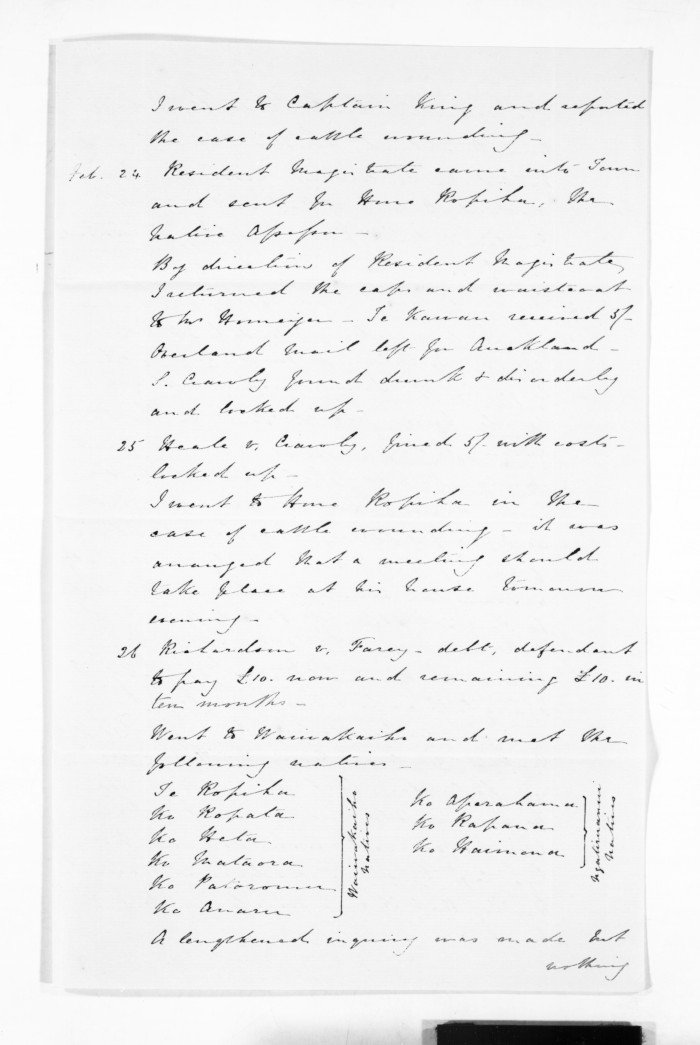 I went to Captain King and reported
the case of cattle wounding -
Feb. 24 Resident Magistrate came into Town
and sent for Hone Ropiha, the
Native Assessor -
By direction of Resident Magistrate,
I returned the cap and waistcoat
to Mr - Te Kawau received 5/-
Overland Mail left for Auckland -
S. Crawly found drunk & disorderly
and locked up -
25 Heale v. Crawly, fined 5/- with costs -
locked up -
I went to Hone Ropiha in the
case of cattle wounding - it was
arranged that a meeting should
take place at his house tomorrow
evening -
26 Richardson v. Farey - debt, defendant
to pay £10. now and remaining £10. in
two months -
Went to Waiwakaiho and met the
following natives -
Te Ropiha
Ko Ropata
Ko Heta
Ko Mataora
Ko Pataromu
Ko Anaru
Waiwakaiho
natives
Ko Aperahama
Ko Rapana
Ko Haimona
natives
A lengthened inquiry was made but
nothing